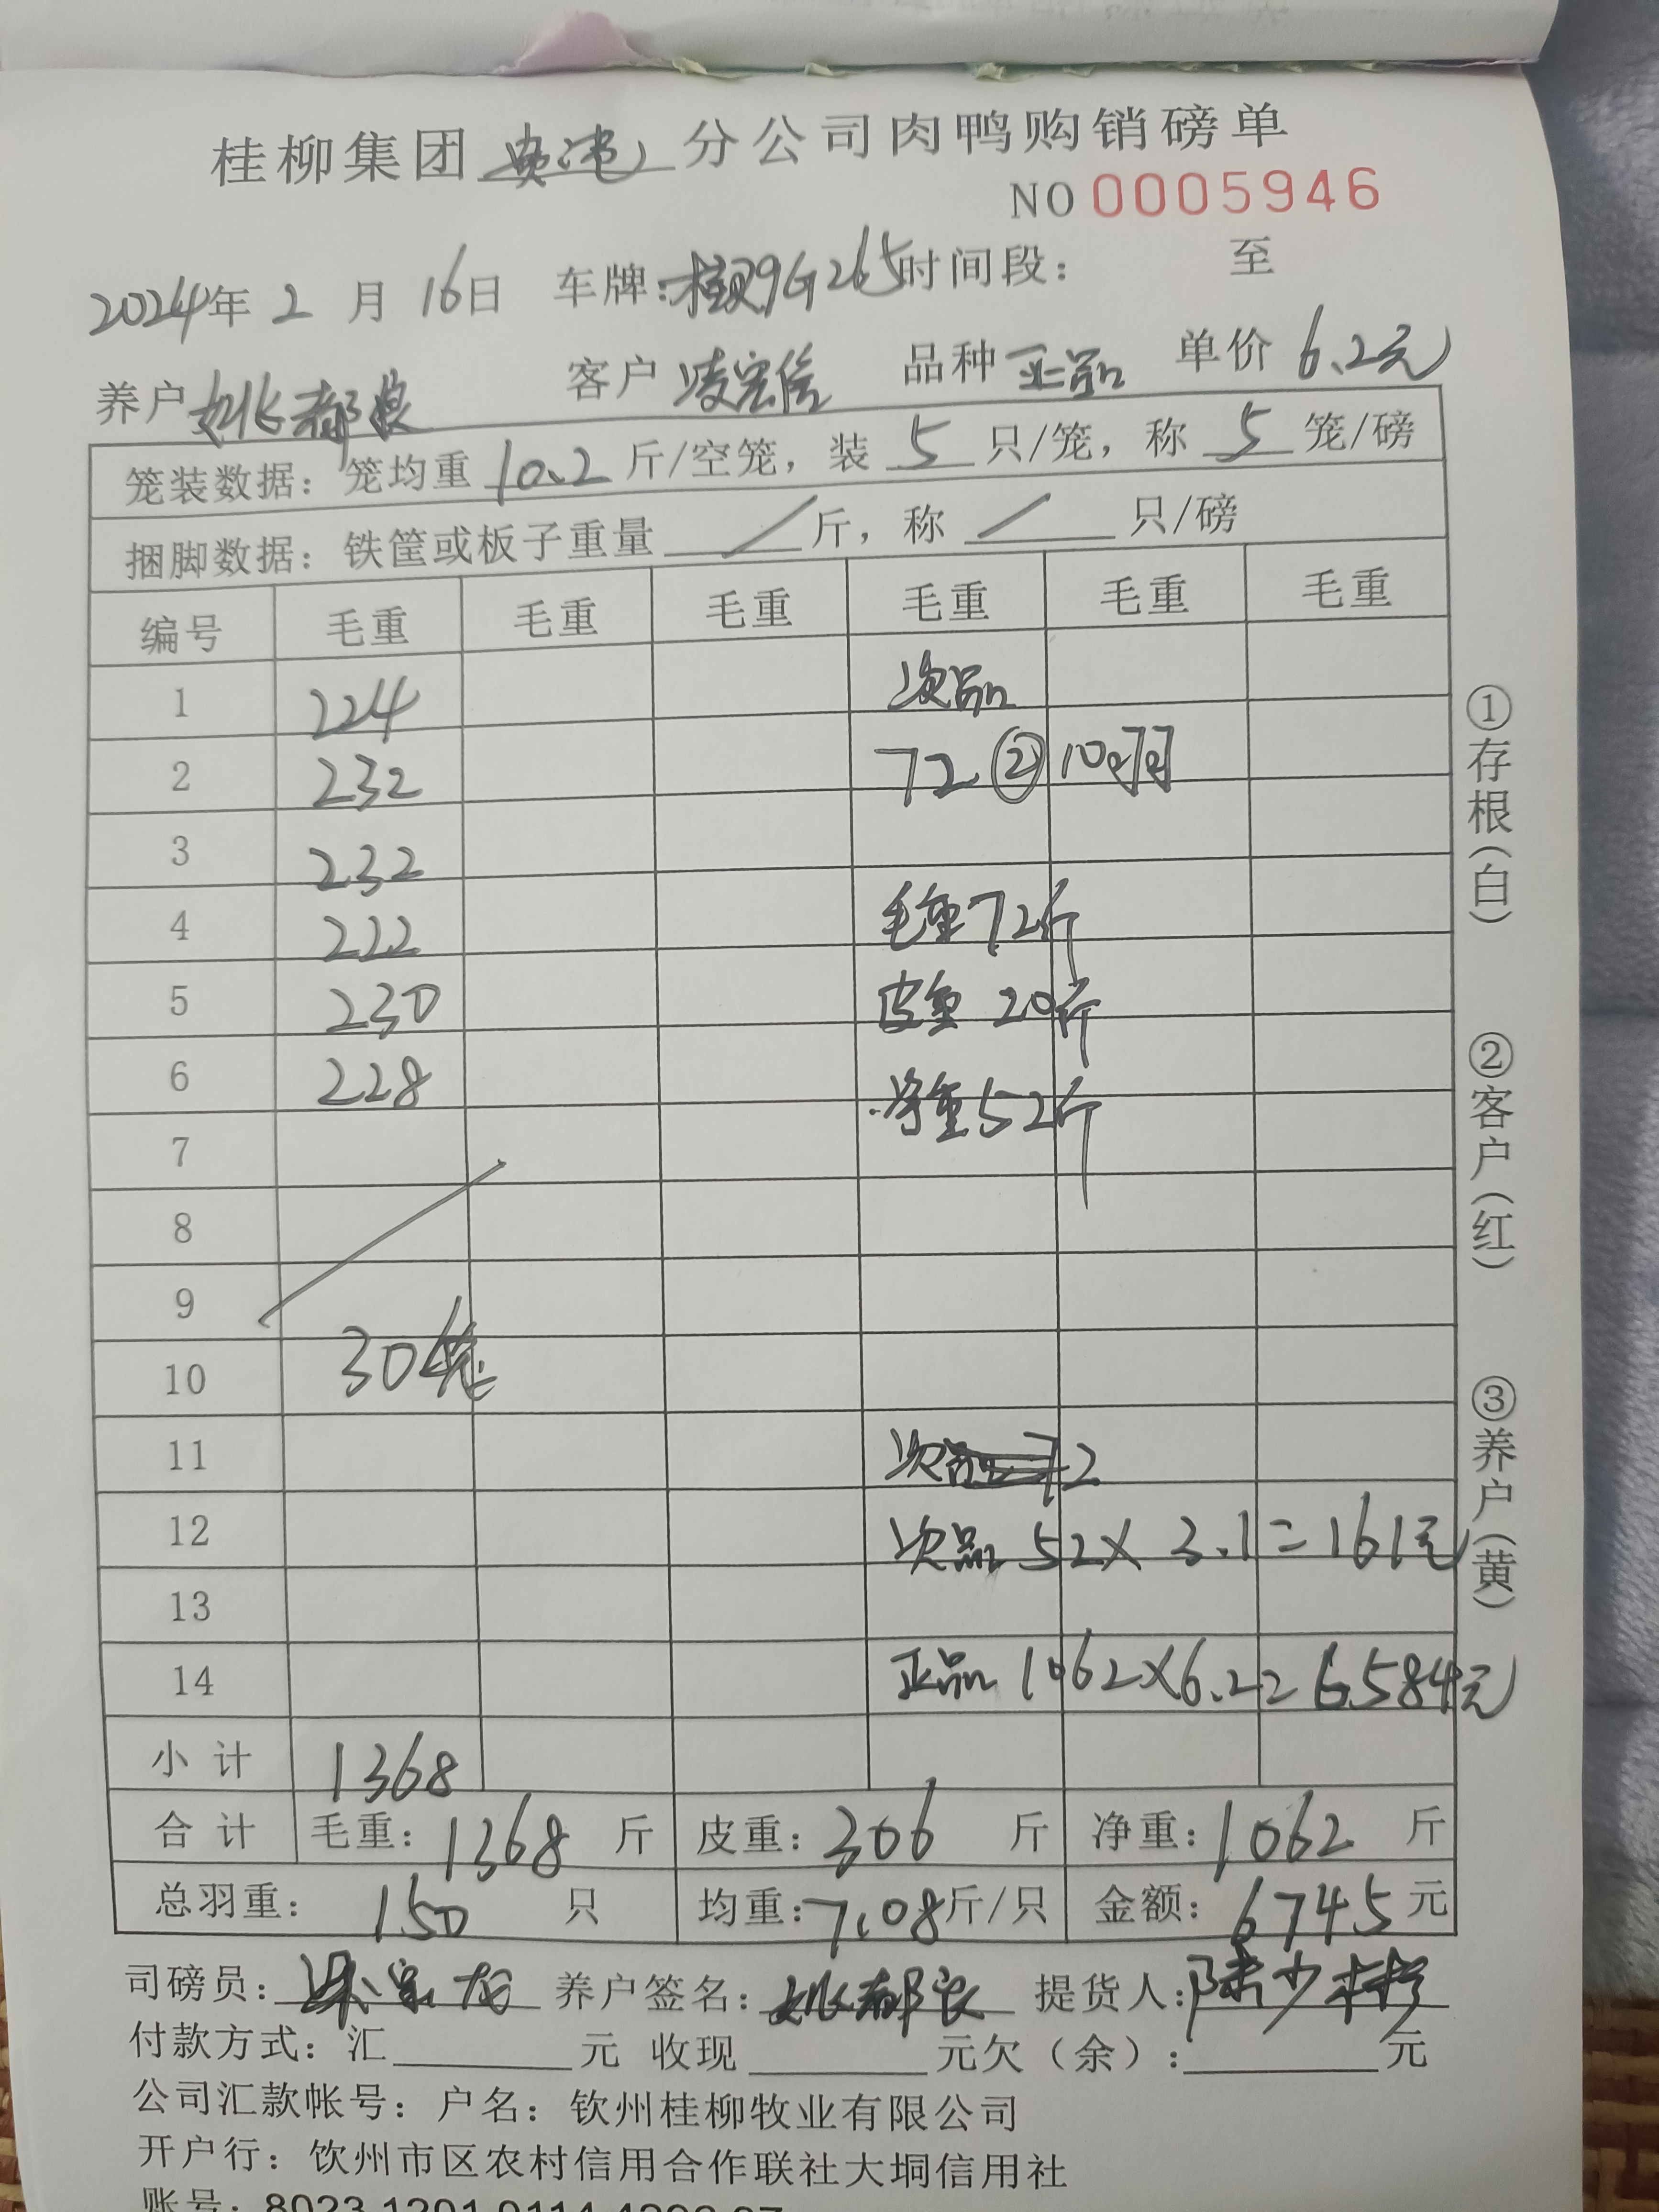 桂柳集团 贵港 分公司肉鸭购销磅单
NO 0005946
2024年 2 月 16日 车牌: 桂R9G265 时间段: 至
养户 姚都良 客户 凌宏信 品种 正品 单价 6.2元
笼装数据: 笼均重 10.2 斤/空笼, 装 5 只/笼, 称 5 笼/磅
捆脚数据: 铁筐或板子重量 / 斤, 称 / 只/磅
编号 毛重 毛重 毛重 毛重 毛重 毛重
1 224 次品
2 232 72 ② 10羽
3 232
4 222 毛重72斤
5 230 皮重 20斤
6 228 净重52斤
7
8
9
10 30笼
11 次品 72
12 次品 52×3.1=161元
13
14 正品 1062×6.2=6584元
小计 1368
合计 毛重: 1368 斤 皮重: 306 斤 净重: 1062 斤
总羽重: 150 只 均重: 7.08斤/只 金额: 6745元
司磅员: 养户签名: 姚都良 提货人: 陆少彬
付款方式: 汇 元 收现 元欠(余): 元
公司汇款帐号: 户名: 钦州桂柳牧业有限公司
开户行: 钦州市区农村信用合作联社大垌信用社
账号:
①存根(白)
②客户(红)
③养户(黄)